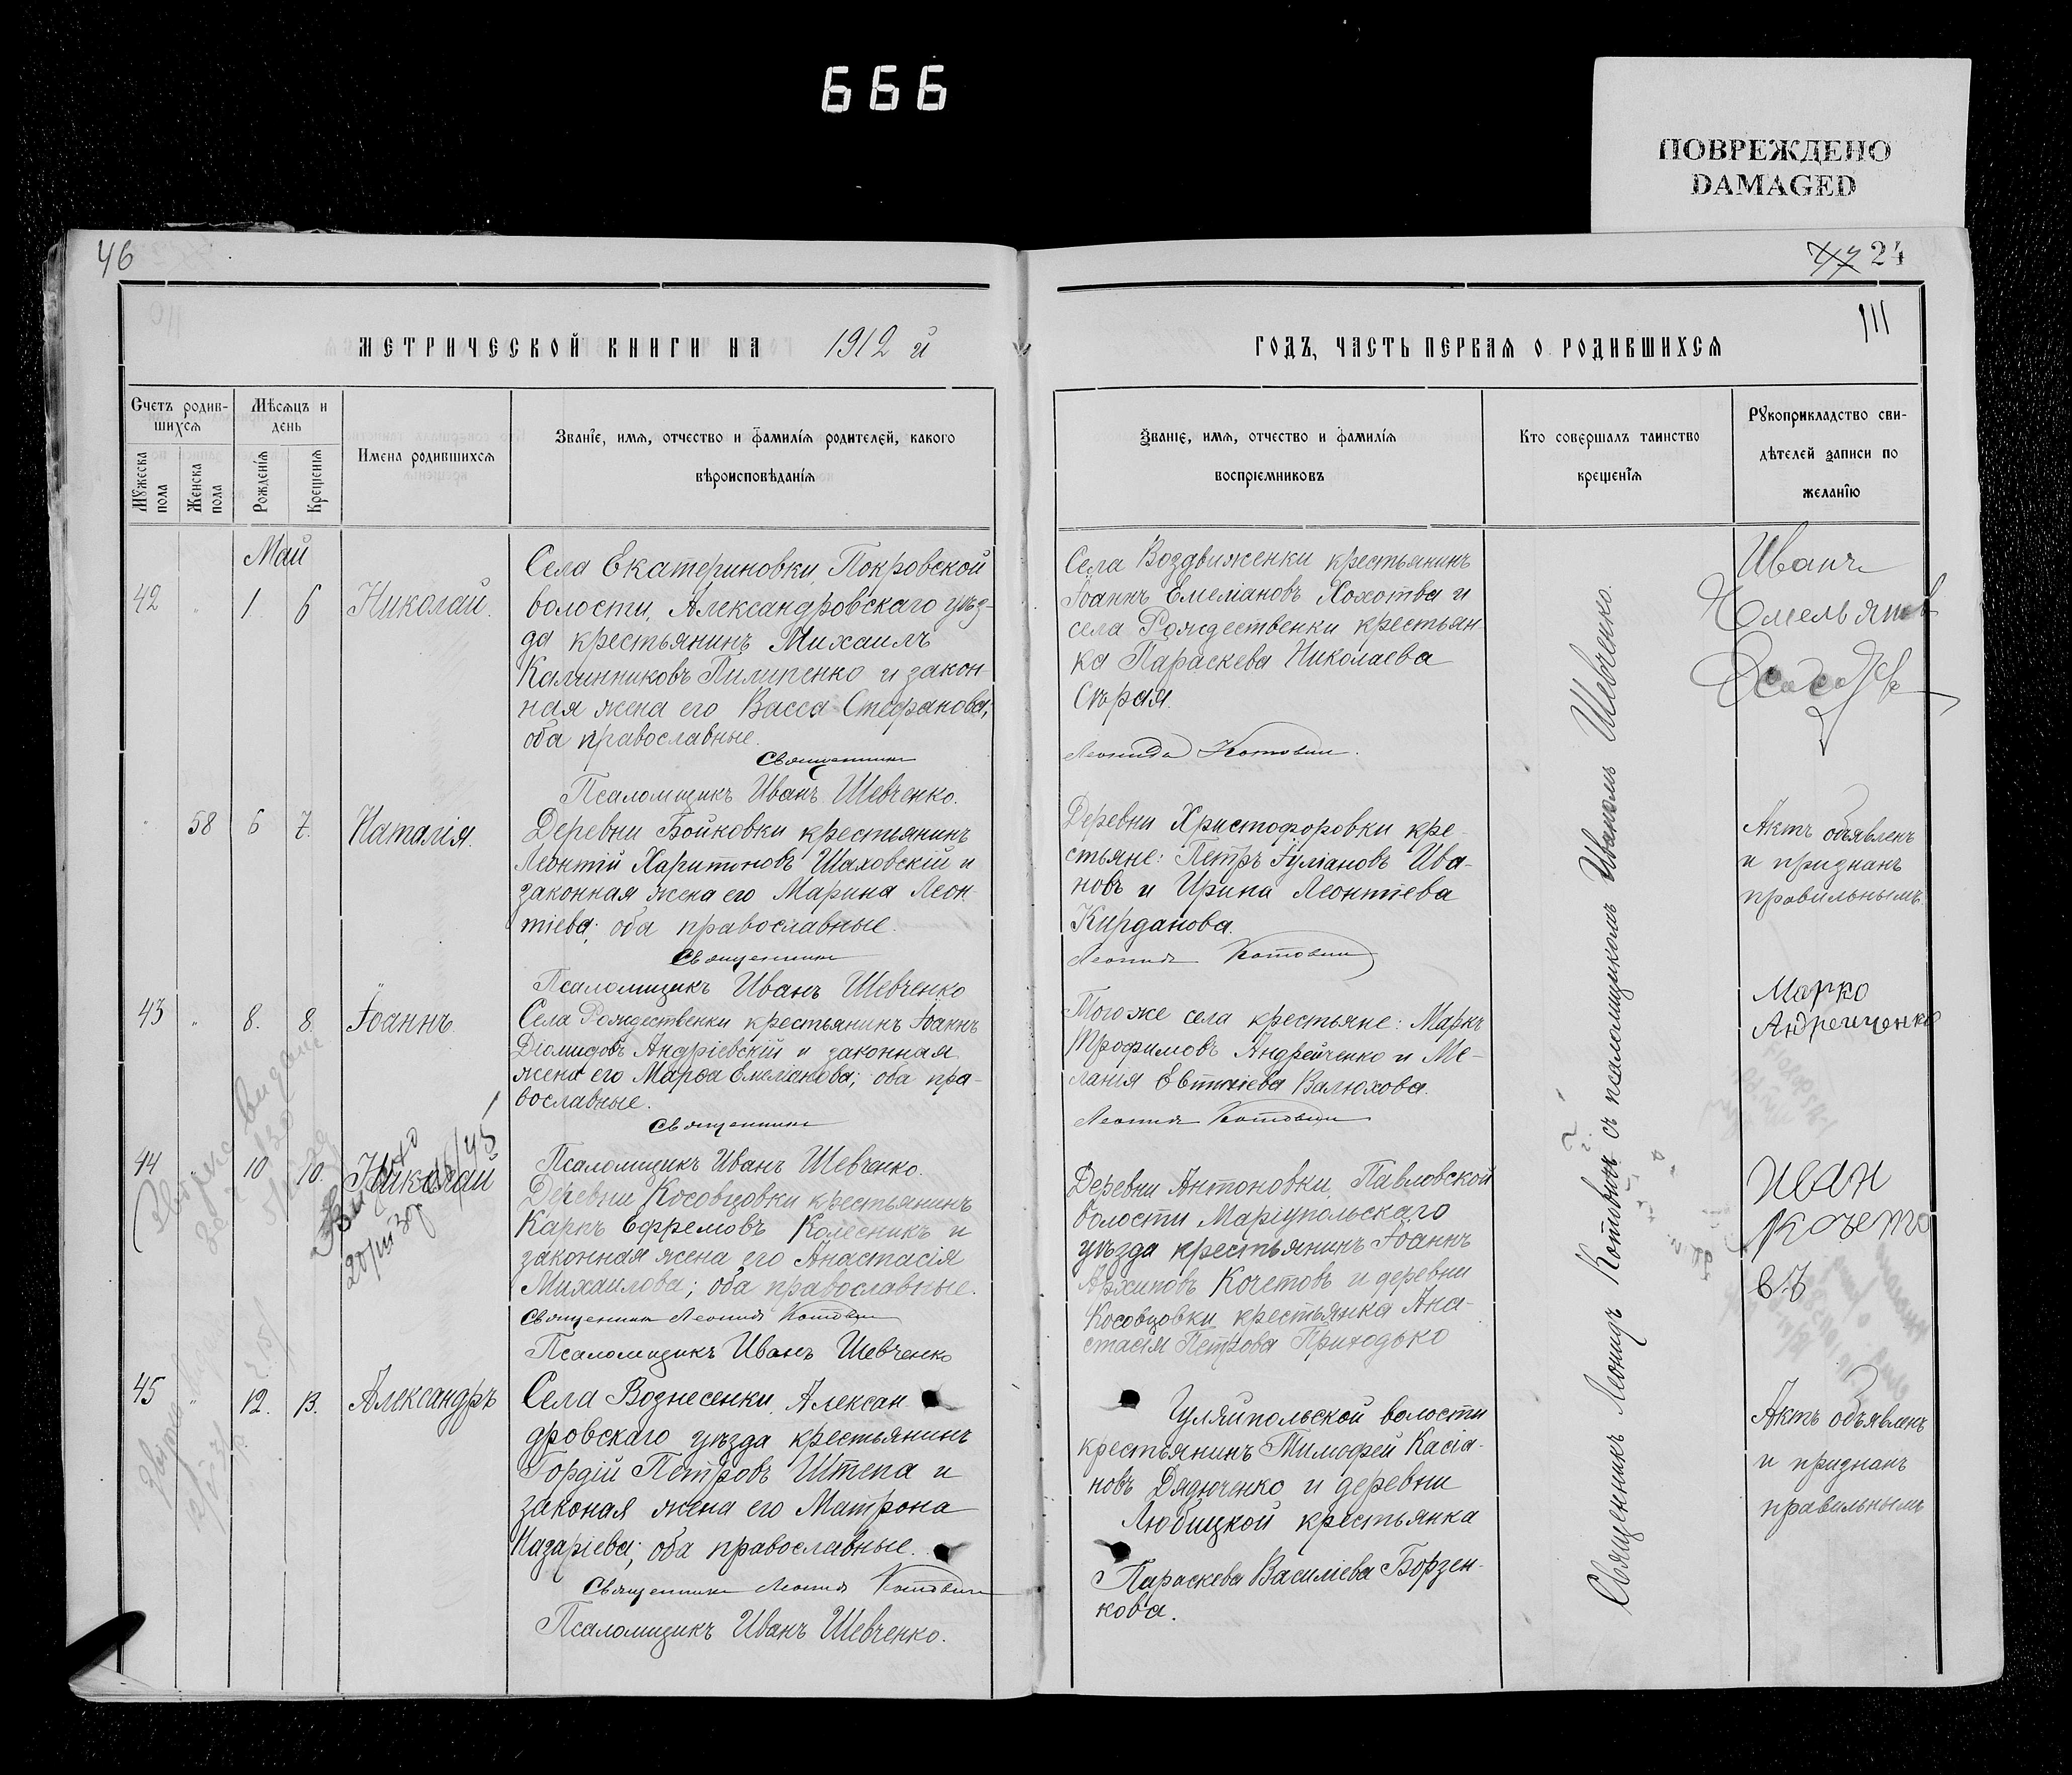 666
ПОВРЕЖДЕНО
DAMAGED
46
МЕТРИЧЕСКОЙ КНИГИ НА 1912 й
Счетъ родив-
шихся
Мѣсяцъ и
день
Мужеска
пола
Женска
пола
Рожденія
Крещенія
Имена родившихся
Званіе, имя, отчество и фамилія родителей, какого
вѣроисповѣданія
Май
42 " 1. 6 Николай.
Села Екатериновки, Покровской
волости, Александровскаго уѣз-
да крестьянинъ Михаилъ
Калинниковъ Пилипенко и закон-
ная жена его Васса Стефанова;
оба православные.
Священникъ
Псаломщикъ Иванъ Шевченко.
" 58 6 7. Наталія.
Деревни Бойковки крестьянинъ
Леонтій Харитоновъ Шаховскій и
законная жена его Марина Леон-
тіева; оба православные.
Священникъ
Псаломщикъ Иванъ Шевченко
43 " 8. 8. Іоаннъ
Села Рождественки крестьянинъ Іоаннъ
Діомидовъ Андріевскій и законная
жена его Марѳа Емеліанова; оба пра-
вославные.
Священникъ
Псаломщикъ Иванъ Шевченко.
44 " 10 10. Николай
Деревни Косовцовки крестьянинъ
Карпъ Ефремовъ Колесникъ и
законная жена его Анастасія
Михаилова; оба православные.
Священникъ Леонидъ Котовичъ
Псаломщикъ Иванъ Шевченко
45 " 12. 13. Александръ
Села Вознесенки, Алексан-
дровскаго уѣзда крестьянинъ
Гордій Петровъ Штепа и
законая жена его Матрона
Назаріева; оба православные.
Священникъ Леонидъ Котовичъ
Псаломщикъ Иванъ Шевченко.
47 24
111
ГОДЪ, ЧАСТЬ ПЕРВАЯ О РОДИВШИХСЯ
Званіе, имя, отчество и фамилія
воспріемниковъ
Кто совершалъ таинство
крещенія
Рукоприкладство сви-
дѣтелей записи по
желанію
Села Воздвиженки крестьянинъ
Іоаннъ Емеліановъ Хохотва и
села Рождественки крестьян-
ка Параскева Николаева
Сѣрая.
Леонидъ Котовичъ.
Иванъ
Емельянов
Деревни Христофоровки кре-
стьяне: Петръ Іуліановъ Ива-
новъ и Ирина Леонтіева
Кирданова.
Леонидъ Котовичъ
Актъ объявленъ
и признанъ
правильнымъ.
Того же села крестьяне: Маркъ
Трофимовъ Андрейченко и Ме-
ланія Евтихіева Валюхова.
Леонидъ Котовичъ
Марко
Андрейченко
Деревни Антоновки, Павловской
волости Маріупольскаго
уѣзда крестьянинъ Іоаннъ
Архиповъ Кочетовъ и деревни
Косовцовки крестьянка Ана-
стасія Петрова Приходько
иван
кочето
въ
Гуляйпольской волости
крестьянинъ Тимофей Касіа-
новъ Дядюченко и деревни
Любицкой крестьянка
Параскева Василіева Борзен-
кова.
Актъ объявленъ
и признанъ
правильнымъ
Священникъ Леонидъ Котовичъ съ псаломщикомъ Иваномъ Шевченко.